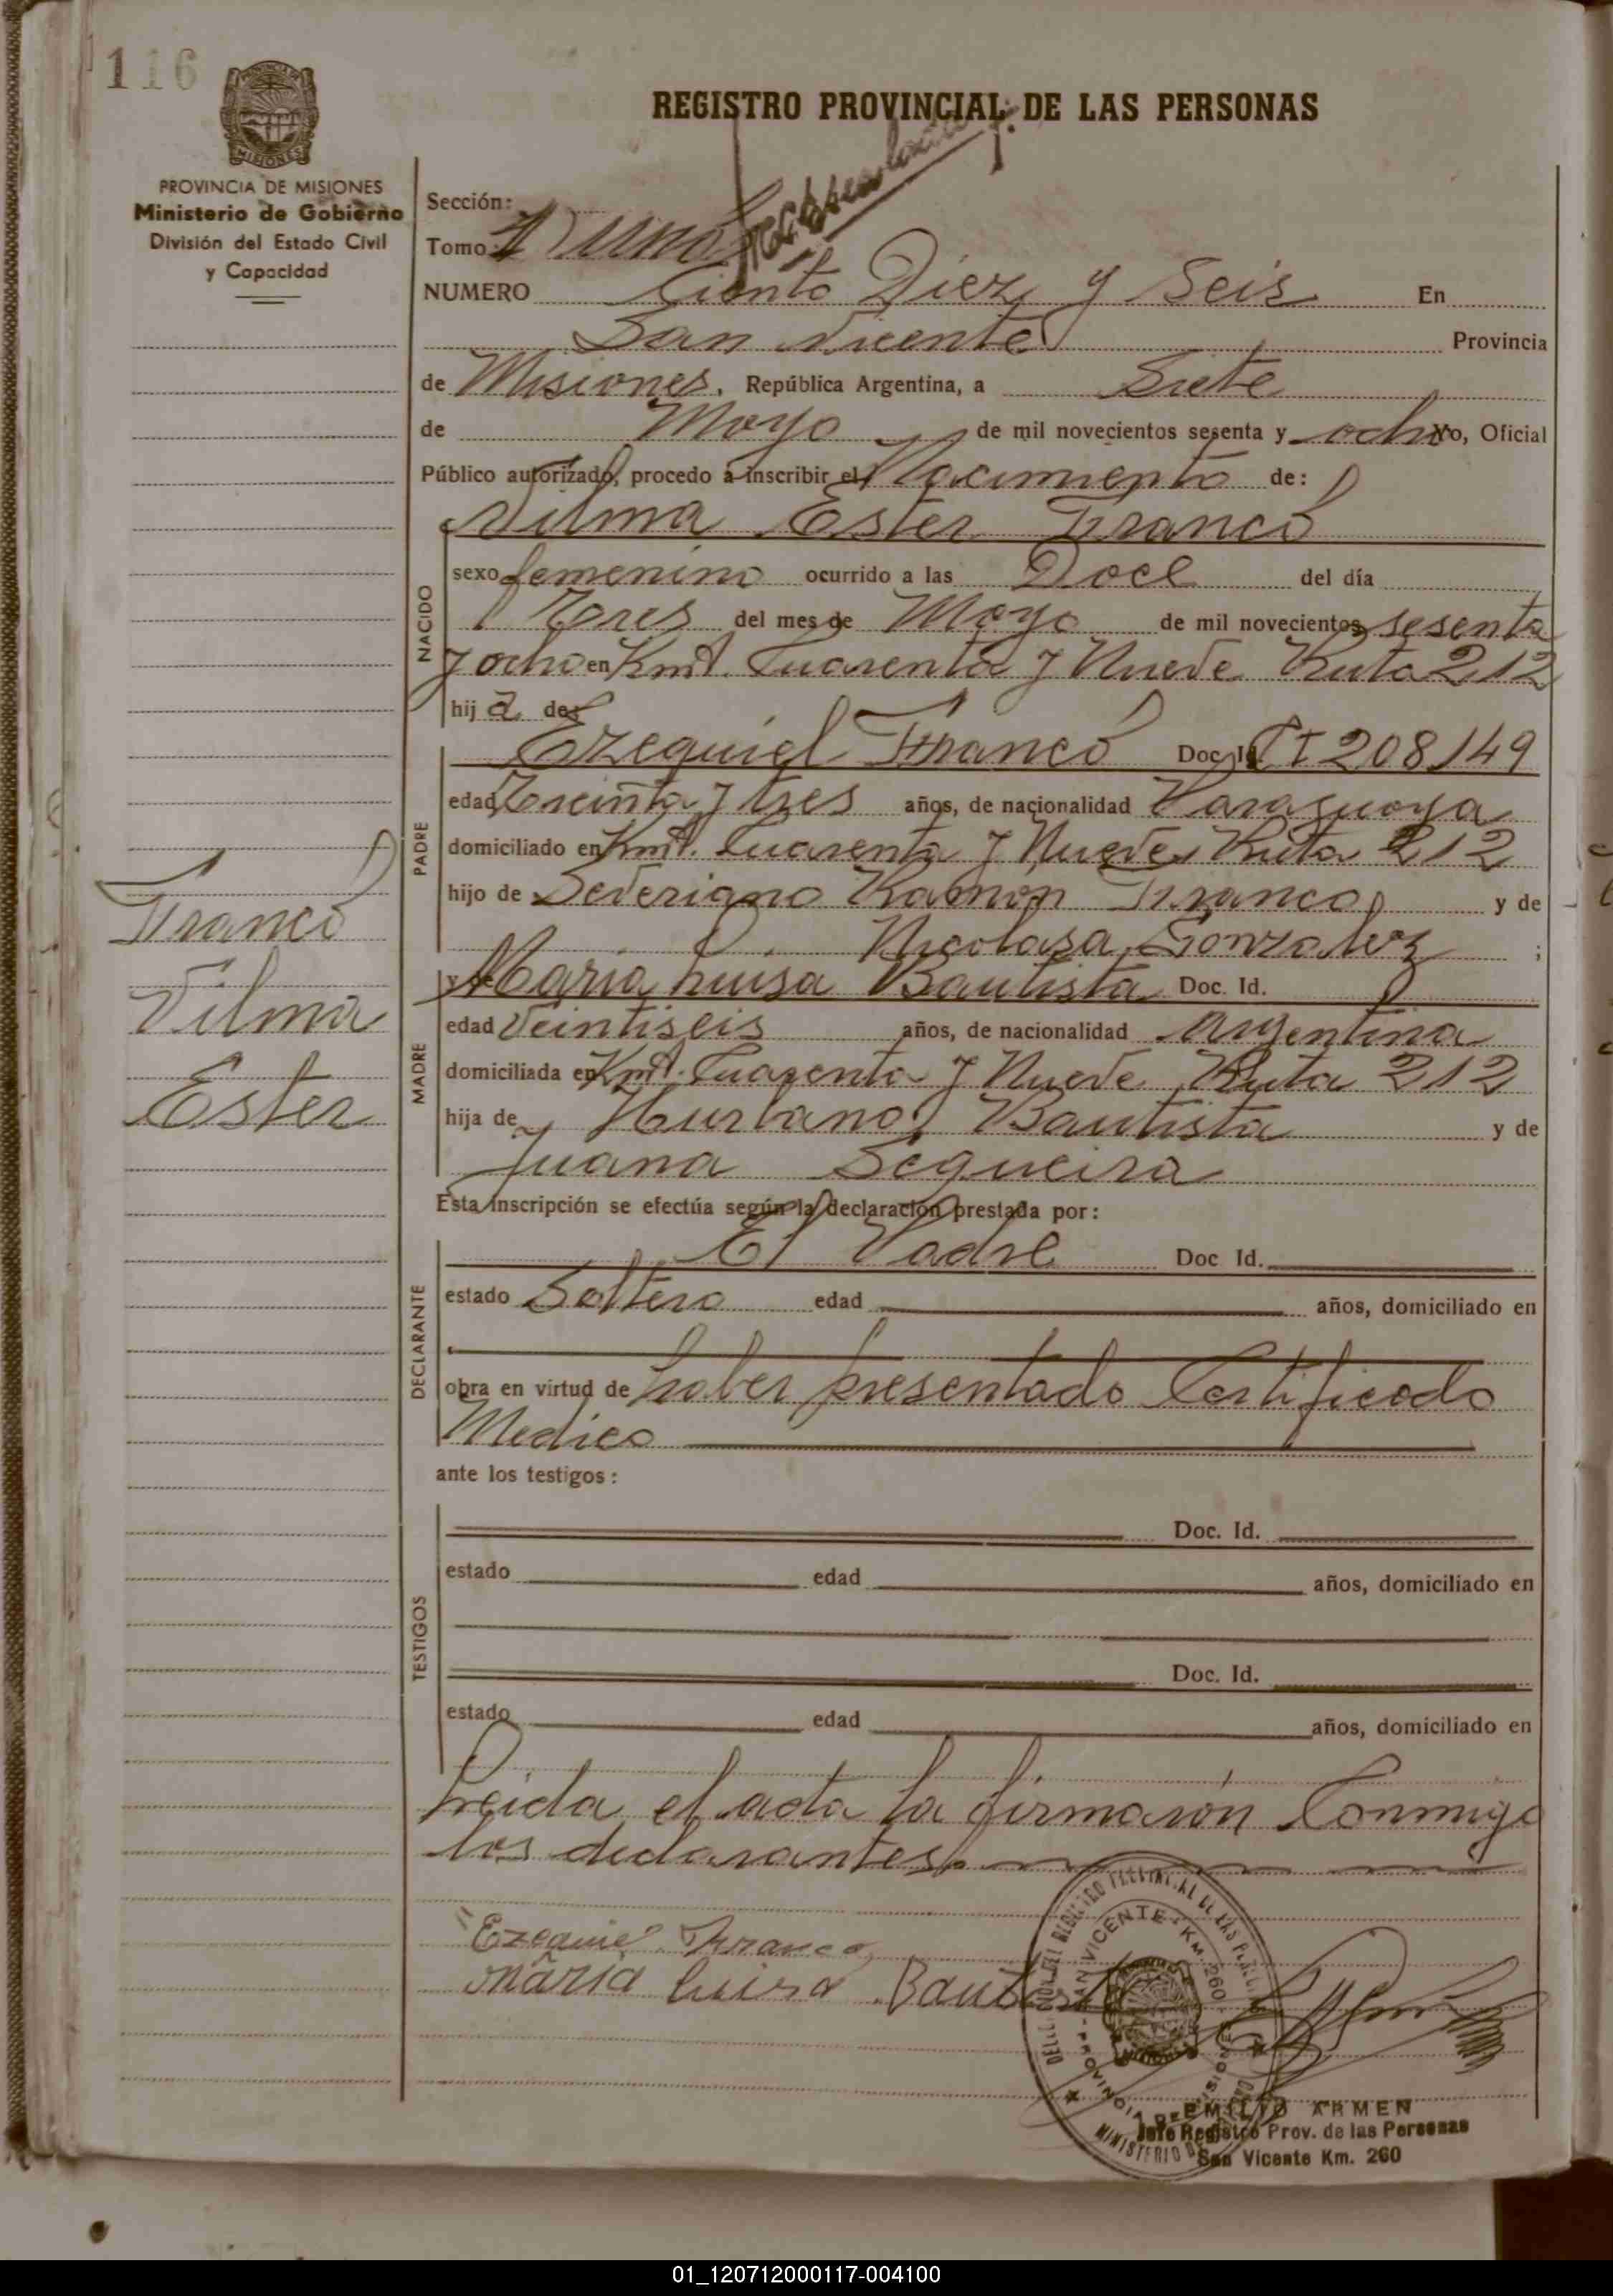 116
REGISTRO PROVINCIAL DE LAS PERSONAS
MISIONES
PROVINCIA DE MISIONES
Ministerio de Gobierno
División del Estado Civil
y Capacidad
Sección:
Tomo: 1
NUMERO Ciento Diez y Seis En
San Vicente Provincia
de Misiones, República Argentina, a Siete
de Mayo de mil novecientos sesenta y ocho Yo, Oficial
Público autorizado, procedo a inscribir el Nacimiento de:
Vilma Ester Franco
NACIDO
sexo femenino ocurrido a las Doce del día
Tres del mes de Mayo de mil novecientos sesenta
y ocho en Kmt. Cuarenta y Nueve Ruta 212
hija de:
PADRE
Ezequiel Franco Doc. Id. CI 208149
edad Treinta y tres años, de nacionalidad Paraguaya
domiciliado en Kmt. Cuarenta y Nueve Ruta 212
hijo de Severiano Ramon Franco y de
Nicolasa Gonzalez ;
y de Maria Luisa Bautista Doc. Id.
MADRE
edad Veintiseis años, de nacionalidad Argentina
domiciliada en Kmt. Cuarenta y Nueve Ruta 212
hija de Hurbano Bautista y de
Juana Sequeira
Esta inscripción se efectúa según la declaración prestada por:
DECLARANTE
El Padre Doc Id.
estado Soltero edad años, domiciliado en
obra en virtud de haber presentado Certificado
Medico
ante los testigos:
TESTIGOS
Doc. Id.
estado edad años, domiciliado en
Doc. Id.
estado edad años, domiciliado en
Franco
Vilma
Ester
Leida el acta la firmarón Conmigo
los declarantes
Ezequiel Franco
Maria Luisa Bautista
SAN VICENTE - KM. 260 - PROVINCIA DE MISIONES
EMILIO ARMEN
Jefe Registro Prov. de las Personas
San Vicente Km. 260
01_120712000117-004100